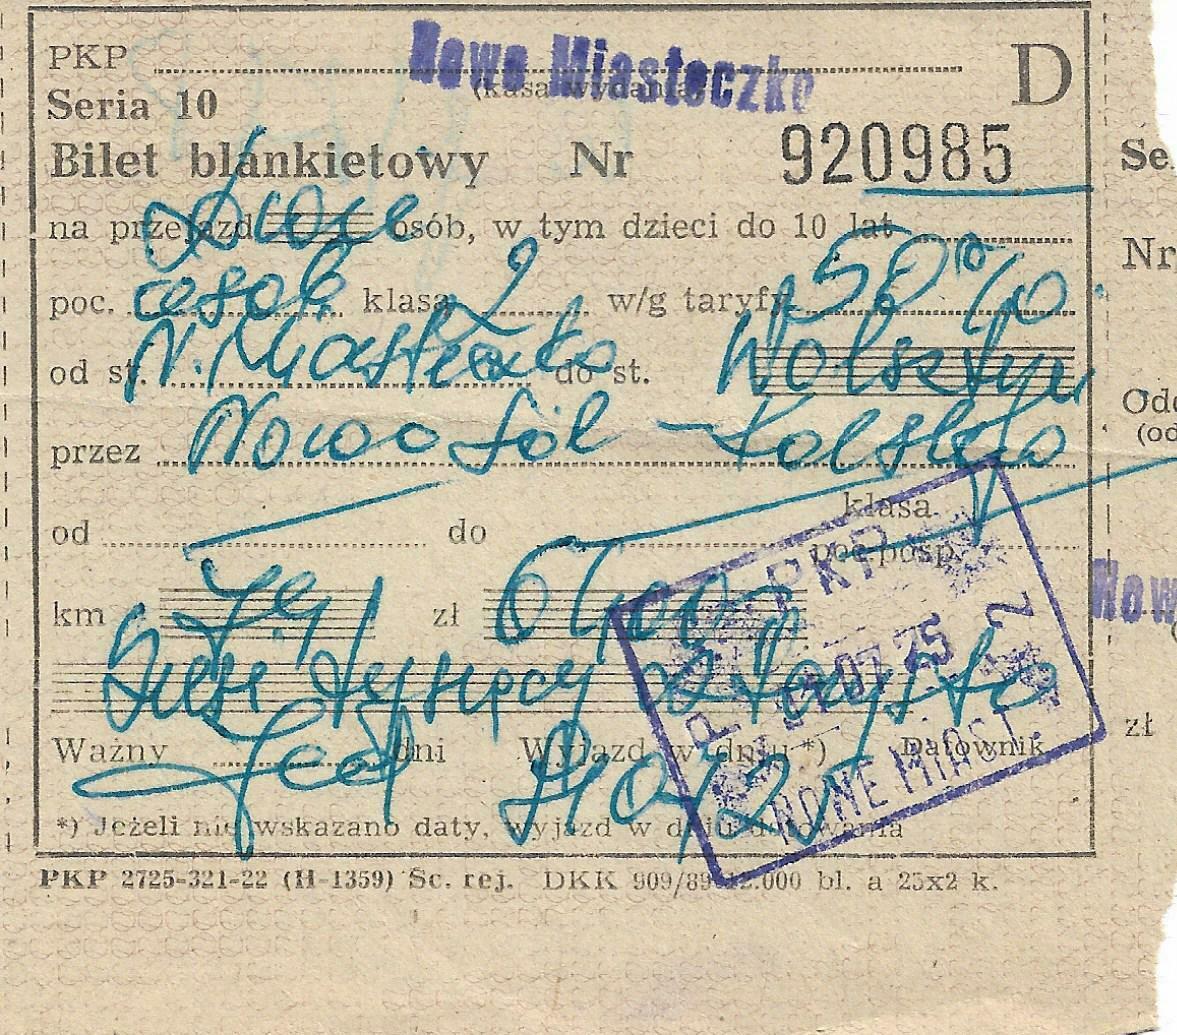 Nowe Miasteczko
PKP (kasa wydania) D
Seria 10
Bilet blankietowy Nr 920985
na przejazd dwoje osób, w tym dzieci do 10 lat
poc. osob. klasa 2 w/g taryfy 50%
od st. N. Miasteczko do st. Wolsztyn
przez Nowa Sól - Kolsko
od do klasa
poc. posp.
km zł
tysięcy
Ważny jed dni Wyjazd w dniu *) Datownik
PKP
2
NOWE MIAST.
*) Jeżeli nie wskazano daty, wyjazd w dniu datowania
PKP 2725-321-22 (H-1359) Sc. rej. DKK 909/89 12.000 bl. a 25x2 k.
Se
Nr
Odc
(od
Now
zł